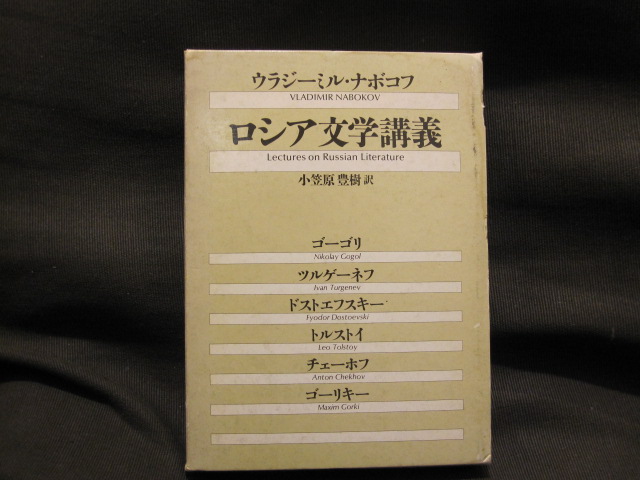 ウラジーミル・ナボコフ
VLADIMIR NABOKOV
ロシア文学講義
Lectures on Russian Literature
小笠原豊樹訳
ゴーゴリ
Nikolay Gogol
ツルゲーネフ
Ivan Turgenev
ドストエフスキー
Fyodor Dostoevski
トルストイ
Leo Tolstoy
チェーホフ
Anton Chekhov
ゴーリキー
Maxim Gorki